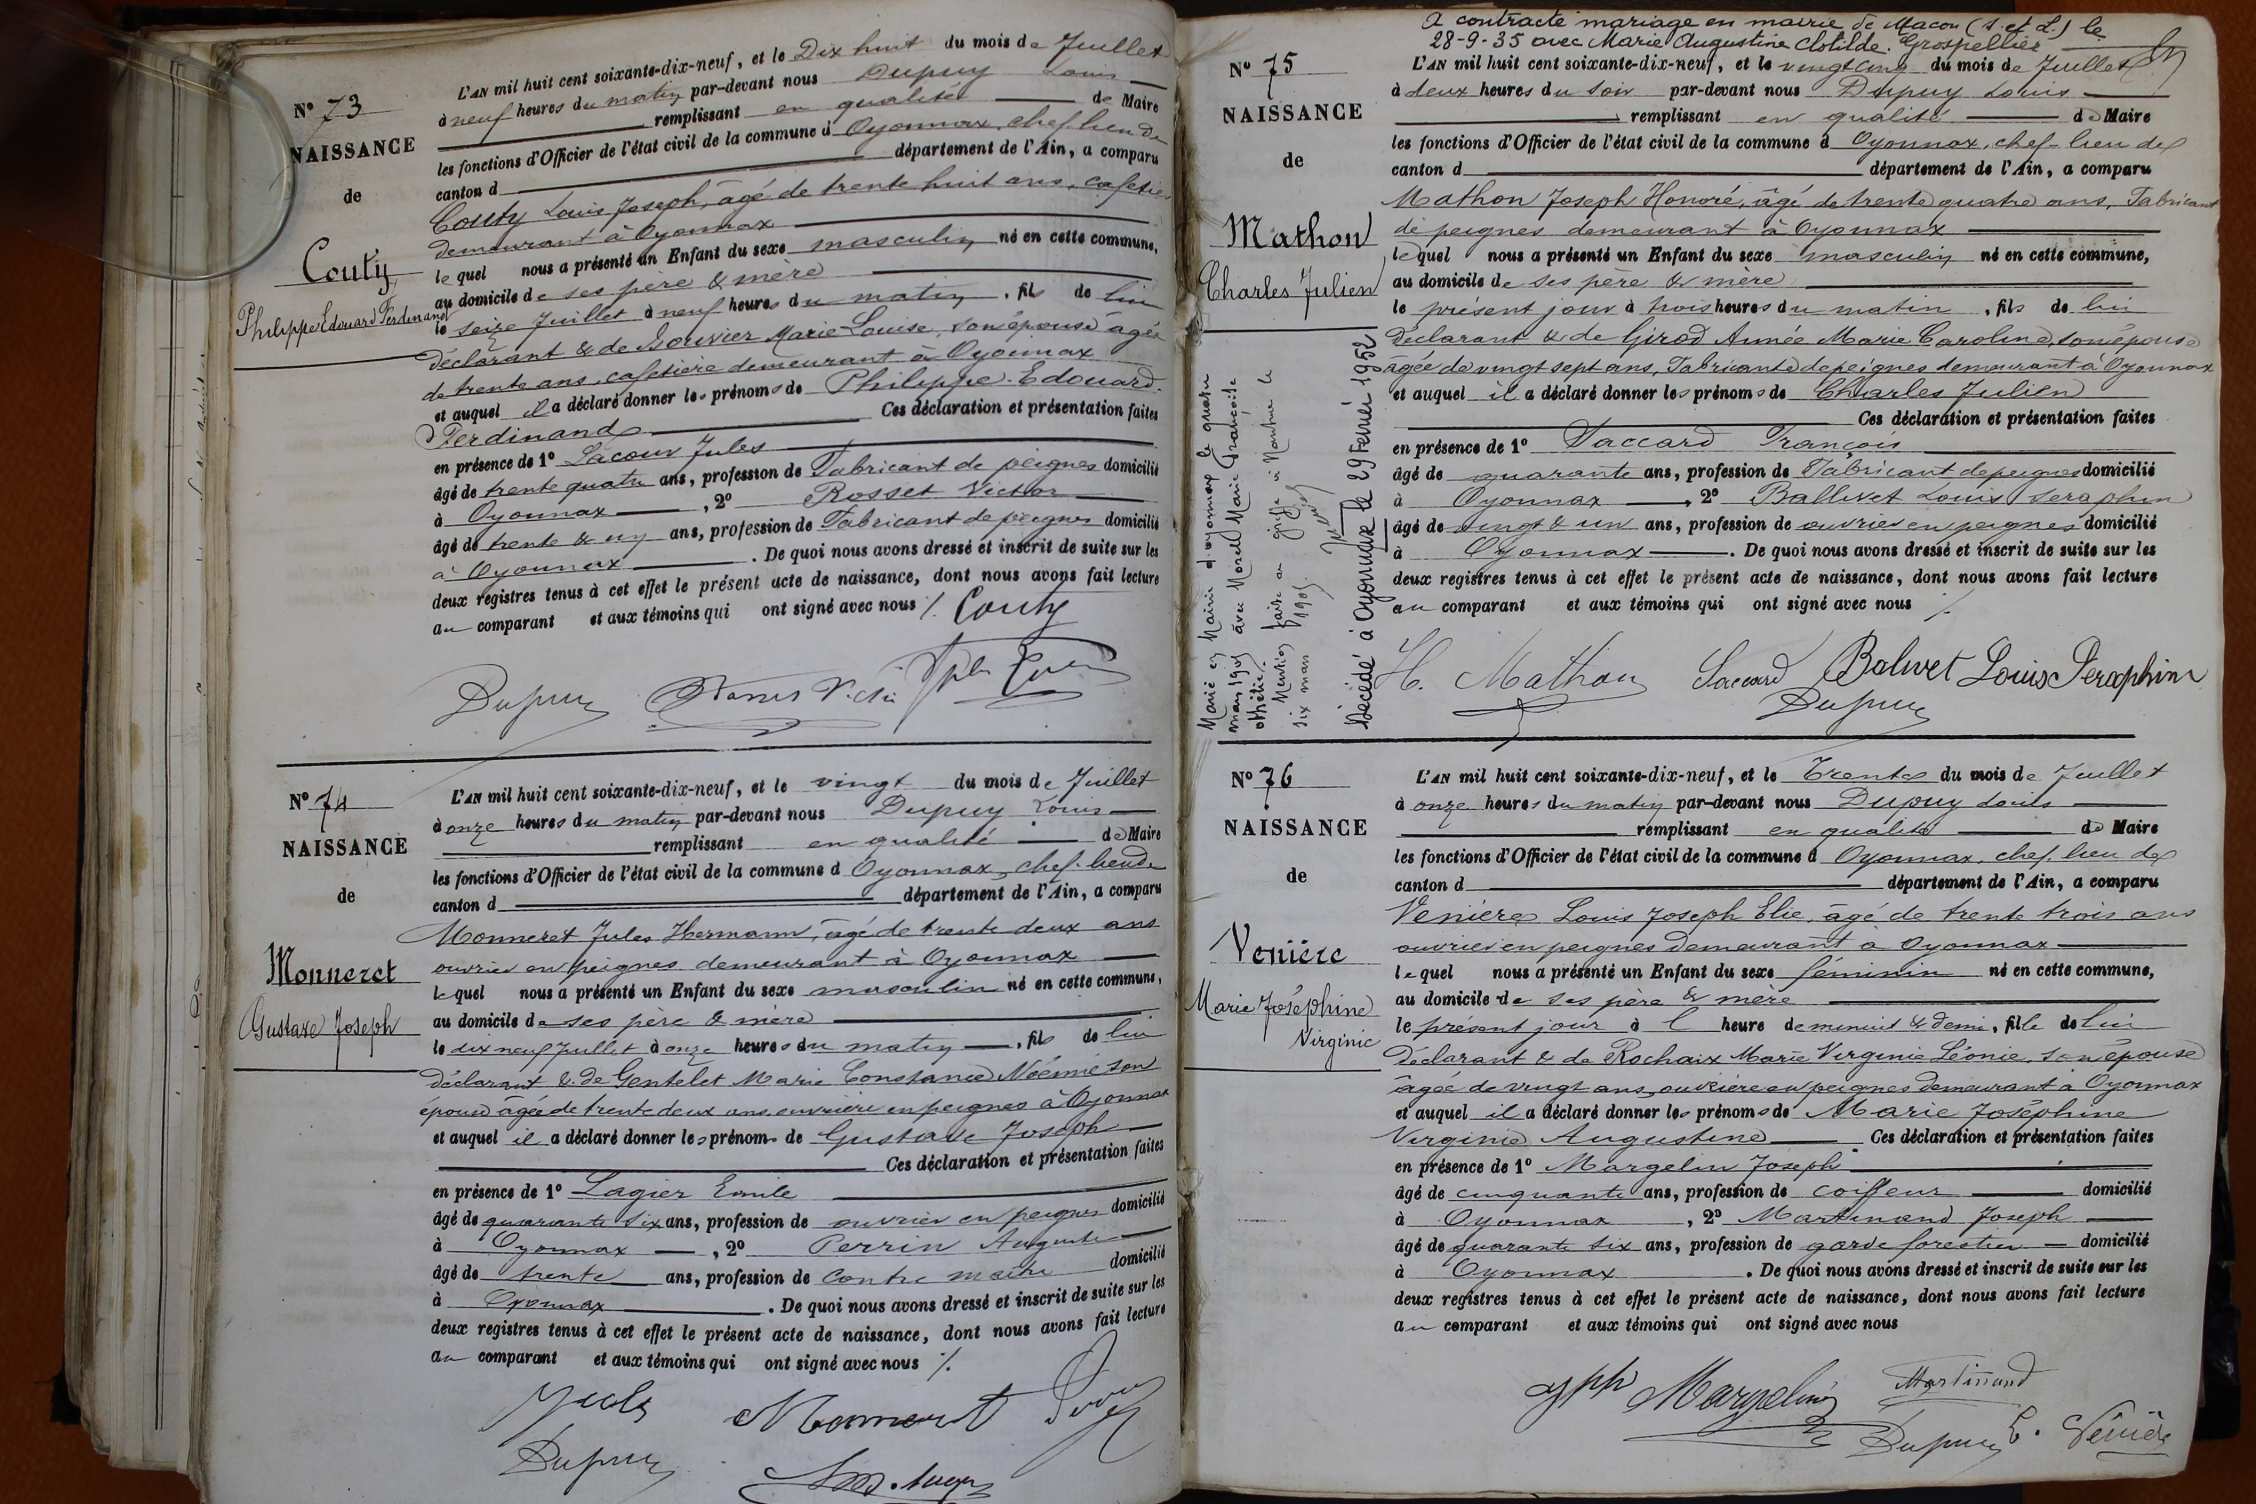 N° 73
NAISSANCE
de
Couty
Philippe Edouard Ferdinand
L'AN mil huit cent soixante-dix-neuf, et le Dix huit du mois de Juillet
à neuf heures du matin par-devant nous Dupuy Louis
remplissant en qualité de Maire
les fonctions d'Officier de l'état civil de la commune d Oyonnax, chef-lieu de
canton d département de l'Ain, a comparu
Couty Louis Joseph, âgé de trente huit ans, cafetier
demeurant à Oyonnax
lequel nous a présenté un Enfant du sexe masculin né en cette commune,
au domicile de ses père & mère
le seize Juillet à neuf heures du matin, fils de lui
déclarant & de Marie Louise, son épouse âgée
de trente ans, cafetière demeurant à Oyonnax
et auquel il a déclaré donner les prénoms de Philippe-Edouard-
Ferdinand Ces déclaration et présentation faites
en présence de 1° Lacour Jules
âgé de trente quatre ans, profession de Fabricant de peignes domicilié
à Oyonnax, 2° Rosset Victor
âgé de trente & un ans, profession de Fabricant de peignes domicilié
à Oyonnax. De quoi nous avons dressé et inscrit de suite sur les
deux registres tenus à cet effet le présent acte de naissance, dont nous avons fait lecture
au comparant et aux témoins qui ont signé avec nous ./. Couty
Dupuy
N° 74
NAISSANCE
de
Monneret
Gustave Joseph
L'AN mil huit cent soixante-dix-neuf, et le vingt du mois de Juillet
à onze heures du matin par-devant nous Dupuy Louis
remplissant en qualité de Maire
les fonctions d'Officier de l'état civil de la commune d Oyonnax, chef-lieu de
canton d département de l'Ain, a comparu
Monneret Jules Hermann, âgé de trente deux ans
ouvrier en peignes demeurant à Oyonnax
lequel nous a présenté un Enfant du sexe masculin né en cette commune,
au domicile de ses père & mère
le dix neuf Juillet à onze heures du matin, fils de lui
déclarant & de Gentelet Marie Constance Noémie son
épouse âgée de trente deux ans, ouvrière en peignes à Oyonnax
et auquel il a déclaré donner les prénoms de Gustave Joseph
Ces déclaration et présentation faites
en présence de 1° Lagier Emile
âgé de quarante six ans, profession de ouvrier en peignes domicilié
à Oyonnax, 2° Perrin Auguste
âgé de trente ans, profession de contre maître domicilié
à Oyonnax. De quoi nous avons dressé et inscrit de suite sur les
deux registres tenus à cet effet le présent acte de naissance, dont nous avons fait lecture
au comparant et aux témoins qui ont signé avec nous ./.
Monneret
Dupuy
A contracté mariage en mairie de Macon (S. et L.) le
28-9-35 avec Marie Augustine Clotilde Grospellier
N° 75
NAISSANCE
de
Mathon
Charles Julien
Marié en Mairie d'oyonnax le quatre
mars 1905 avec Morel Marie Françoise
six mars 1905
Décédé à Oyonnax le 29 Février 1952
L'AN mil huit cent soixante-dix-neuf, et le vingt cinq du mois de Juillet
à deux heures du soir par-devant nous Dupuy Louis
remplissant en qualité de Maire
les fonctions d'Officier de l'état civil de la commune d Oyonnax, chef-lieu de
canton d département de l'Ain, a comparu
Mathon Joseph Honoré, âgé de trente quatre ans, Fabricant
de peignes demeurant à Oyonnax
lequel nous a présenté un Enfant du sexe masculin né en cette commune,
au domicile de ses père & mère
le présent jour à trois heures du matin, fils de lui
déclarant & de Girod Aimée Marie Caroline, son épouse
âgée de vingt sept ans, Fabricante de peignes demeurant à Oyonnax
et auquel il a déclaré donner les prénoms de Charles Julien
Ces déclaration et présentation faites
en présence de 1° Saccard François
âgé de quarante ans, profession de Fabricant de peignes domicilié
à Oyonnax, 2° Ballivet Louis Seraphin
âgé de vingt & un ans, profession de ouvrier en peignes domicilié
à Oyonnax. De quoi nous avons dressé et inscrit de suite sur les
deux registres tenus à cet effet le présent acte de naissance, dont nous avons fait lecture
au comparant et aux témoins qui ont signé avec nous ./.
H. Mathon Saccard Balivet Louis Seraphin
Dupuy
N° 76
NAISSANCE
de
Venière
Marie Joséphine
Virginie
L'AN mil huit cent soixante-dix-neuf, et le Trente du mois de Juillet
à onze heures du matin par-devant nous Dupuy Louis
remplissant en qualité de Maire
les fonctions d'Officier de l'état civil de la commune d Oyonnax, chef-lieu de
canton d département de l'Ain, a comparu
Venière Louis Joseph Elie, âgé de trente trois ans
ouvrier en peignes demeurant à Oyonnax
lequel nous a présenté un Enfant du sexe féminin né en cette commune,
au domicile de ses père & mère
le présent jour à l heure de minuit & demi, fille de lui
déclarant & de Rochaix Marie Virginie Léonie, son épouse
âgée de vingt ans, ouvrière en peignes demeurant à Oyonnax
et auquel il a déclaré donner les prénoms de Marie Joséphine
Virginie Augustine Ces déclaration et présentation faites
en présence de 1° Margelin Joseph
âgé de cinquante ans, profession de coiffeur domicilié
à Oyonnax, 2° Martinand Joseph
âgé de quarante six ans, profession de garde forestier domicilié
à Oyonnax. De quoi nous avons dressé et inscrit de suite sur les
deux registres tenus à cet effet le présent acte de naissance, dont nous avons fait lecture
au comparant et aux témoins qui ont signé avec nous
Margelin Martinand
Dupuy E. Venière